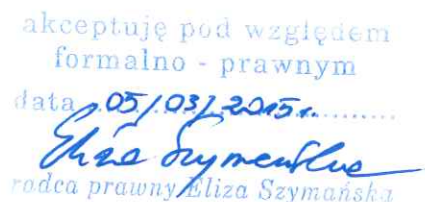 akceptuję pod względem
formalno - prawnym
data 05/03/2015r.
Eliza Szymańska
radca prawny Eliza Szymańska